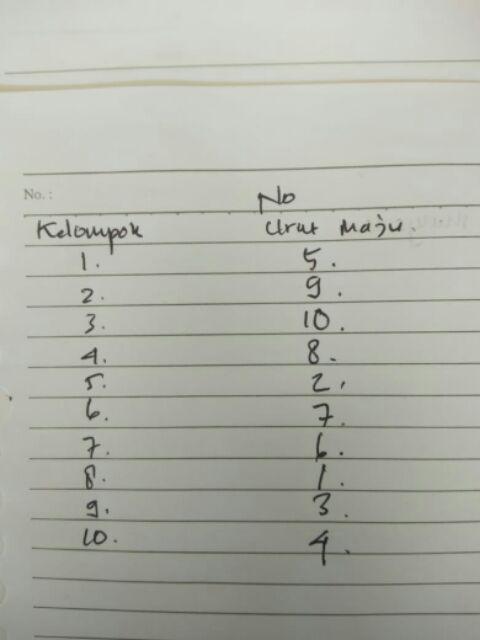 No. :
No
Kelompok Urut Maju.
1. 5.
2. 9.
3. 10.
4. 8.
5. 2.
6. 7.
7. 6.
8. 1.
9. 3.
10. 4.